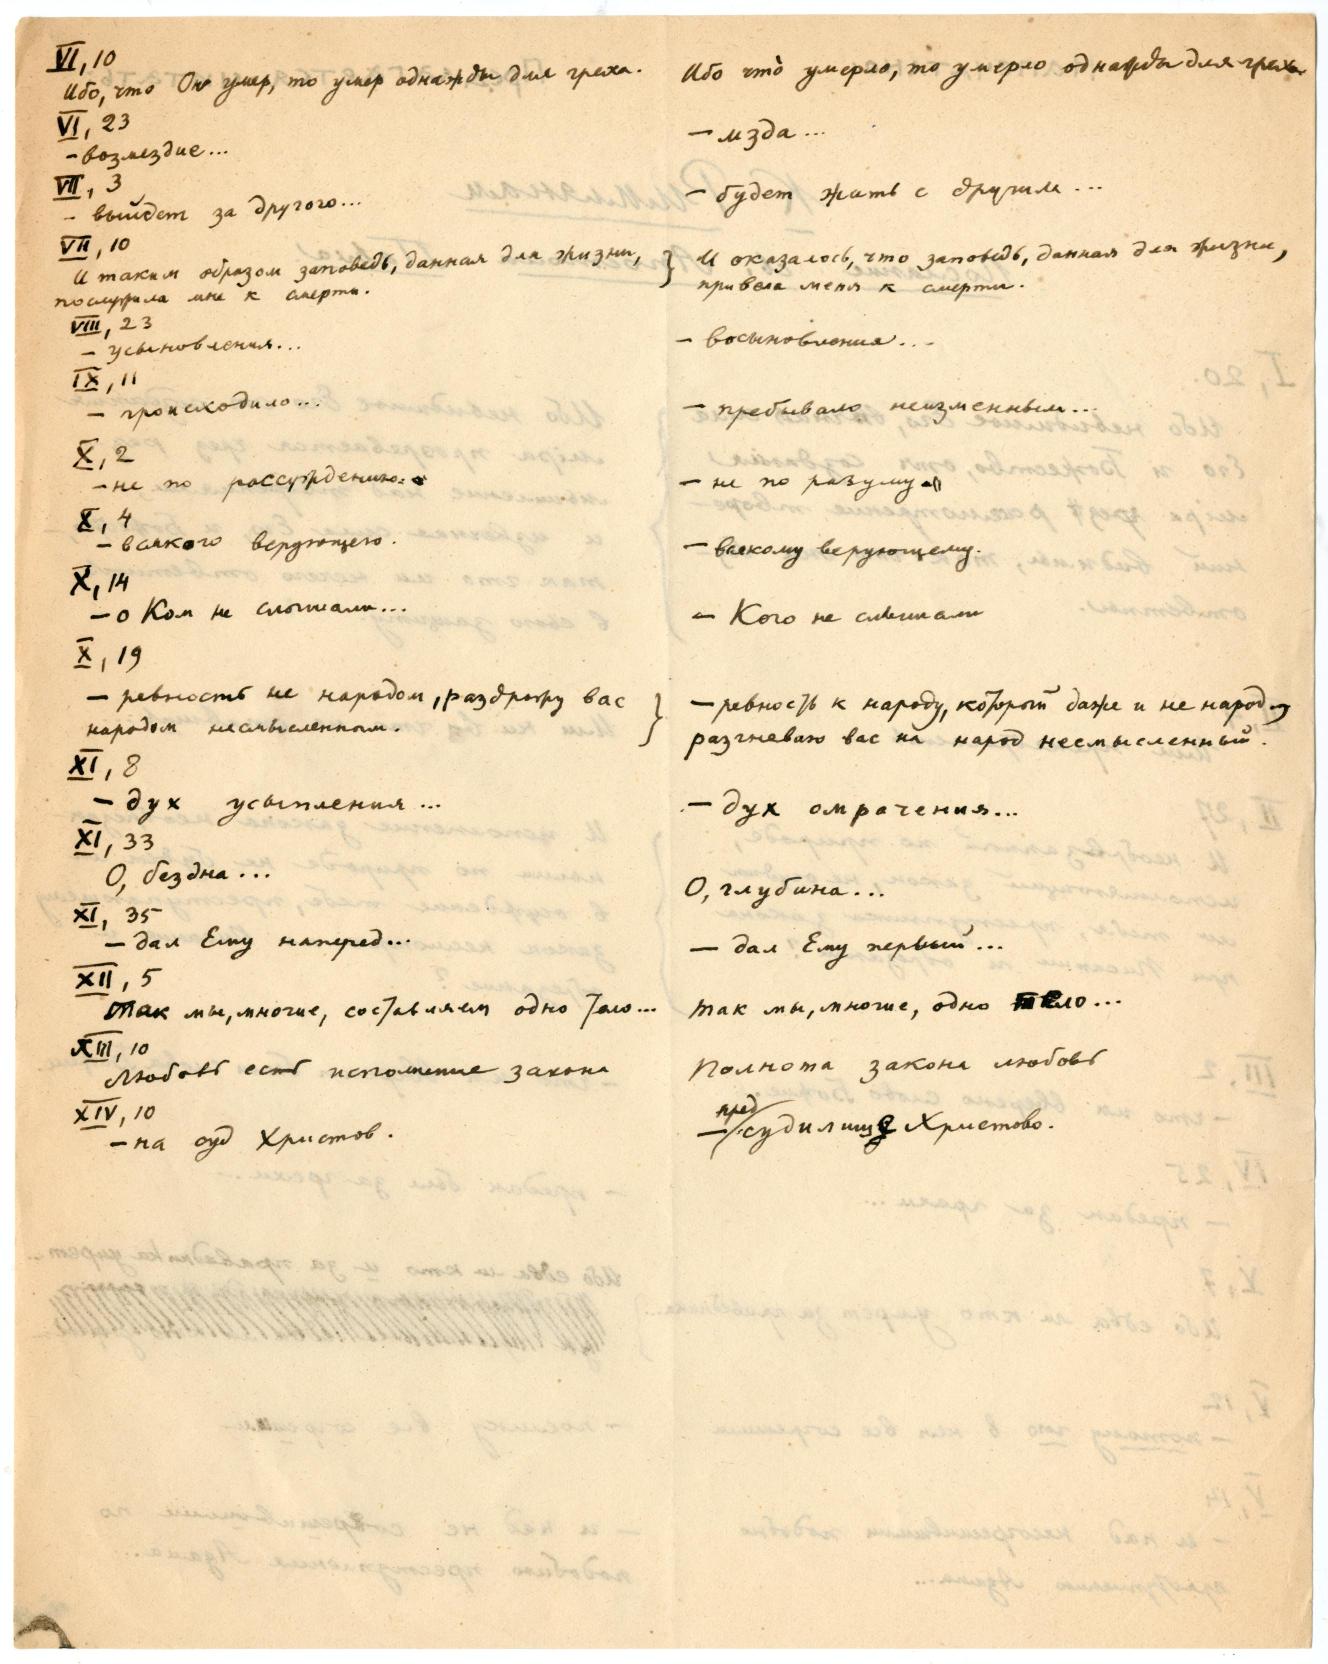 VI, 10
Ибо, что Он умер, то умер однажды для греха.
Ибо что умерло, то умерло однажды для греха
VI, 23
– возмездие...
– мзда...
VII, 3
– выйдет за другого...
– будет жить с другим...
VII, 10
И таким образом заповедь, данная для жизни,
послужила мне к смерти.
И оказалось, что заповедь, данная для жизни,
привела меня к смерти.
VIII, 23
– усыновления...
– восыновления...
IX, 11
– происходило...
– пребывало неизменным...
X, 2
– не по рассуждению..
– не по разуму.
X, 4
– всякого верующего.
– всякому верующему.
X, 14
– о Ком не слышали...
– Кого не слышали
X, 19
– ревность не народом, раздражу вас
народом несмысленным.
– ревность к народу, который даже и не народ,
разгневаю вас на народ несмысленный.
XI, 8
– дух усыпления...
– дух омрачения...
XI, 33
О, бездна...
О, глубина...
XI, 35
– дал Ему наперед...
– дал Ему первый...
XII, 5
Так мы, многие, составляем одно тело...
так мы, многие, одно тело...
XIII, 10
Любовь есть исполнение закона
Полнота закона любовь
XIV, 10
– на суд Христов.
– пред судилище Христово.